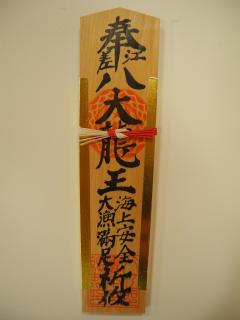 奉
江
刺
八大龍王
海上安全
大漁満足
祈攸